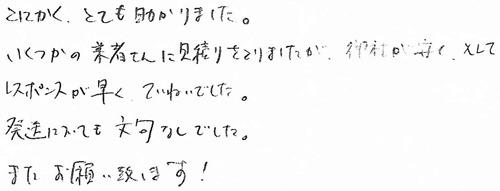 とにかく、とても助かりました。
いくつかの業者さんに見積りをとりましたが、御社が安く、そして
レスポンスが早く、ていねいでした。
発送についても文句なしでした。
またお願い致します！